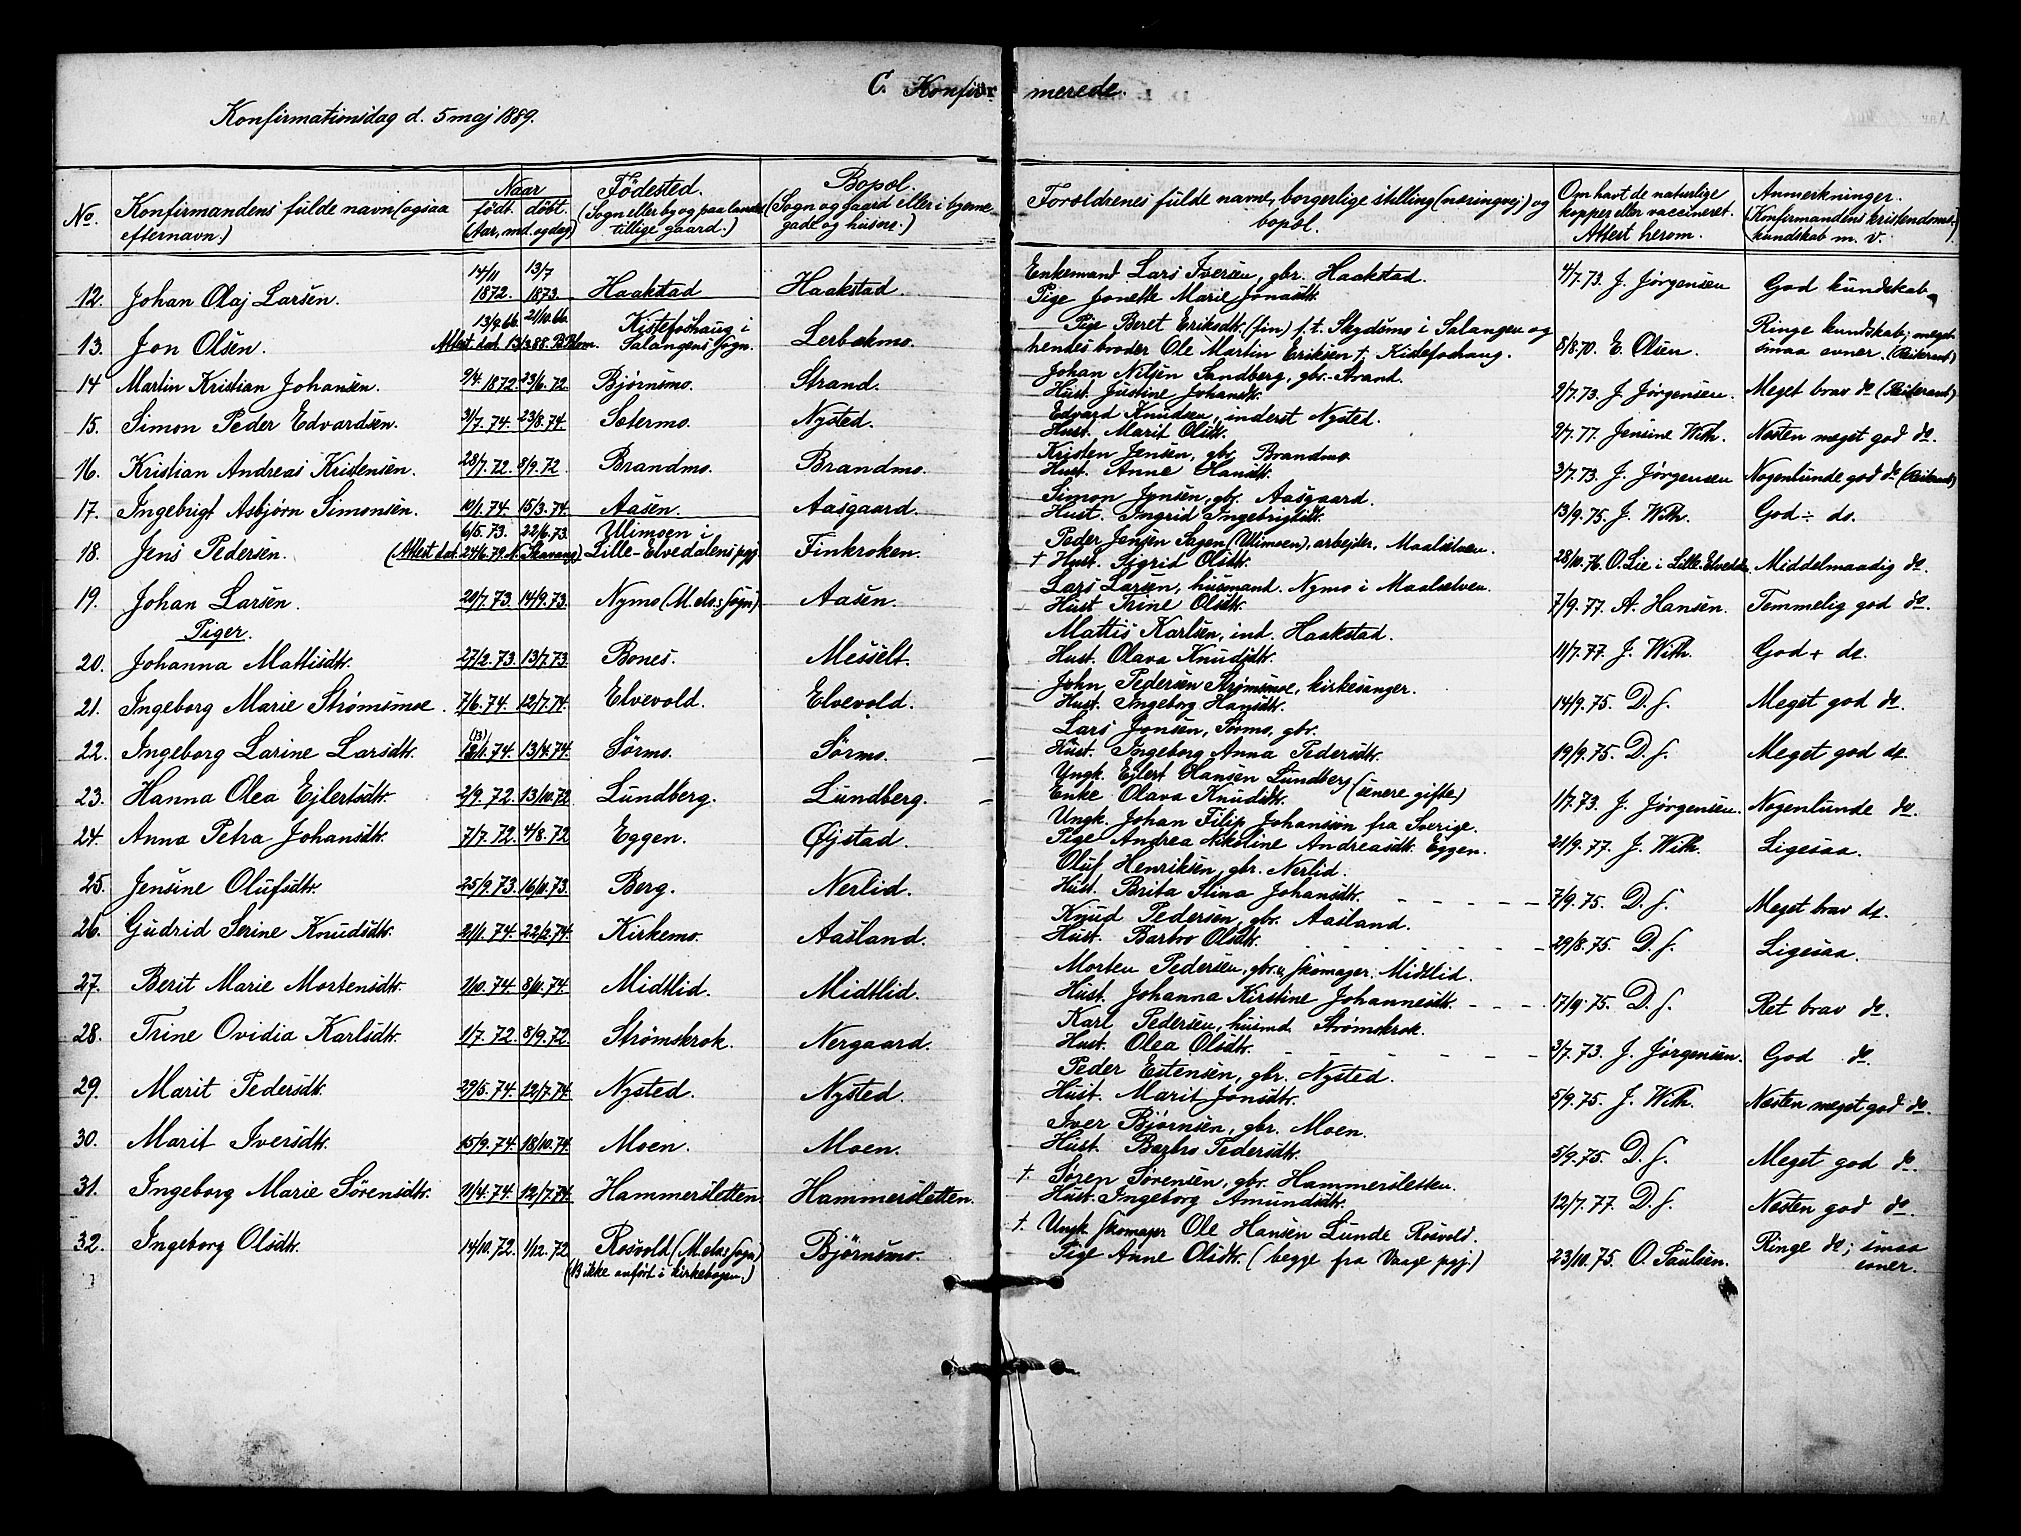 C. Konfirmerede.
Konfirmationsdag d. 5 maj 1889.
No. Konfirmandens fulde navn (ogsaa efternavn.) Naar født. døbt. (Aar, md. og dag) Fødested. (Sogn eller by og paa landet tillige gaard.) Bopæl. (Sogn og gaard eller i byerne gade og husnr.) Forældrenes fulde navne, borgerlige stilling (næringsvej) og bopæl. Om havt de naturlige kopper eller vaccineret. Attest herom. Anmerkninger. (Konfirmandens kristendomskundskab m. v.
12. Johan Olaj Larsen. 14/11 1872. 13/7 1873. Haakstad Haakstad. Enkemand Lars Iversen, gbr. Haakstad. Pige Jonette Marie Jonasdtr. 4/7.73. J. Jørgensen God kundskab.
13. Jon Olsen. 13/9.66. 21/10.66. Attest dat. 13/3 88. B. Blom. Kistefoshaug i Salangens sogn. Lerbækmo. Pige Beret Eriksdtr. (fin) f. t. Skydsmo i Salangen og hendes broder Ole Martin Eriksen †, Kistefoshaug. 8/8.70. E. Olsen. Ringe kundskab; meget smaa evner.
14 Martin Kristian Johansen. 9/4.1872. 23/6.72. Bjørnsmo. Strand. Johan Nilsen Sandberg, gbr. Strand. Hust. Justine Johansdtr. 9/7.73. J. Jørgensen. Meget brav do
15. Simon Peder Edvardsen. 31/7.74. 23/8.74. Sætermo. Nysted. Edvard Knudsen, inderst Nysted. Hust. Marit Olsdtr. 9/7.77. Jensine With. Næsten meget god do.
16. Kristian Andreas Kristensen. 28/7.72. 8/9.72 Brandmo. Brandmo. Kristen Jensen, gbr. Brandmo Hust. Anne Hansdtr. 3/7.73. J. Jørgensen Nogenlunde god do
17. Ingebrigt Asbjørn Simonsen. 10/1.74. 15/3.74. Aasen. Aasgaard. Simon Jonsen, gbr. Aasgaard. Hust. Ingrid Ingebrigtsdtr. 13/9.75. J. With. God ÷ do.
18. Jens Pedersen. 6/5.73. 22/6.73. (Attest dat. 24/6.79. N. Skavang) Ulimoen i Lille-Elvedalens pgj. Finkroken. Peder Jensen Sagen (Ulimoen), arbejder, Maalselven. † Hust. Sigrid Olsdtr. 28/10.76. O. Lie i Lille-Elvedalen Middelmaadig do.
19. Johan Larsen. 20/7.73. 14/9.73. Nymo (M.elv.s sogn) Aasen. Lars Larsen, husmand. Nymo i Maalselven. Hust Trine Olsdtr. 7/9.77. A. Hansen. Temmelig god do.
Piger.
20. Johanna Mattisdtr. 27/2.73. 13/7.73. Bones. Messelt. Mattis Karlsen, ind. Haakstad. Hust. Olava Knudsdtr. 11/7.77. J. With. God + do.
21. Ingeborg Marie Strømsmoe. 7/6.74. 12/7.74. Elvevold. Elvevold. John Pedersen Strømsmoe, kirkesanger. Hust. Ingeborg Hansdtr. 14/9.75. D. s. Meget god do.
22. Ingeborg Larine Larsdtr. (13) 12/1.74. 13/4.74. Sørmo. Sørmo. Lars Jonsen, Sørmo, gbr. Hust. Ingeborg Anna Pedersdtr. 19/9.75. D. s. Meget god do.
23. Hanna Olea Ejlertsdtr. 2/9.72. 13/10.72 Lundberg. Lundberg. Ungk. Ejlert Hansen Lundberg Enke Olava Knudsdtr. (senere gifte) 1/7.73. J. Jørgensen. Nogenlunde do.
24. Anna Petra Johansdtr. 7/7.72. 4/8.72 Eggen. Øjstad. Ungk. Johan Filip Johansson fra Sverige. Pige Andrea Nikoline Andreasdtr. Eggen. 21/9.77. J. With. Ligesaa.
25. Jensine Olufsdtr. 25/9.73. 16/11.73. Berg. Nerlid. Oluf Henriksen, gbr. Nerlid. Hust. Brita Stina Johansdtr. 7/9.75. D. s. Meget brav do.
26. Gudrid Serine Knudsdtr. 21/1.74. 22/2.74. Kirkemo. Aasland. Knud Pedersen, gbr. Aasland. Hust. Barbro Olsdtr. 29/8.75. D. s. Ligesaa.
27. Berit Marie Mortensdtr. 1/10.74. 8/11.74. Midtlid. Midtlid. Morten Pedersen, gbr. & skomager. Midtlid. Hust. Johanna Kirstine Johannesdtr. 17/9.75. D. s. Ret brav do.
28. Trine Ovidia Karlsdtr. 1/7.72. 8/9.72. Strømskrok. Nergaard. Karl Pedersen, husmd. Strømskrok. Hust. Olea Olsdtr. 3/7.73. J. Jørgensen. God do.
29. Marit Pedersdtr. 29/5.74. 12/7.74. Nysted. Nysted. Peder Estensen, gbr. Nysted. Hust. Marit Jonsdtr. 5/9.75. J. With. Næsten meget god do.
30. Marit Iversdtr. 15/9.74. 18/10.74. Moen. Moen. Iver Bjørnsen, gbr. Moen. Hust. Barbro Pedersdtr. 5/9.75. D. s. Meget god do.
31. Ingeborg Marie Sørensdtr. 11/4.74. 12/7.74. Hammersletten. Hammersletten. † Søren Sørensen, gbr. Hammersletten. Hust. Ingeborg Amundsdtr. 12/7.77. D. s. Næsten god do.
32. Ingeborg Olsdtr. 14/10.72. 1/12.72 Rosvold (M.elv.s sogn) (NB ikke anført i kirkebogen.) Bjørnsmo. †. Ungk. skomager Ole Hansen Lunde Rosvold. Pige Anne Olsdtr. (begge fra Vaage pgj.) 23/10.75. O. Paulsen. Ringe do; smaa evner.